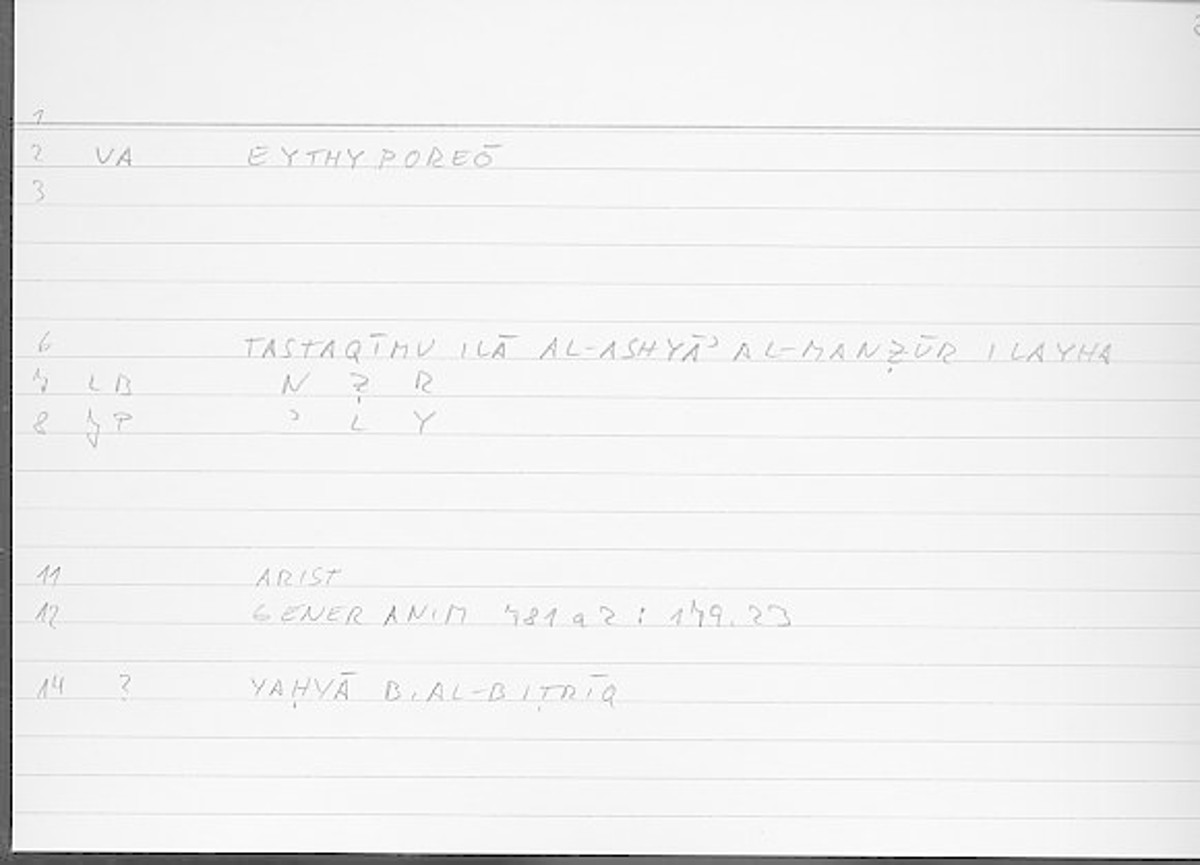 1
2 VA EYTHYPOREŌ
3
6 TASTAQĪMU ILĀ AL-ASHYĀʾ AL-MANẒŪR ILAYHA
7 LB N Ẓ R
8 JP ʾ L Y
11 ARIST
12 GENER ANIM 781 a 2 : 179.23
14 ? YAḤYĀ B. AL-BIṬRĪQ